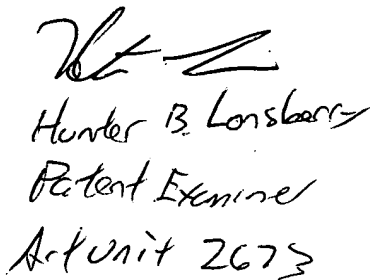 Hunter B. Lonsberry
Patent Examiner
Art Unit 2673